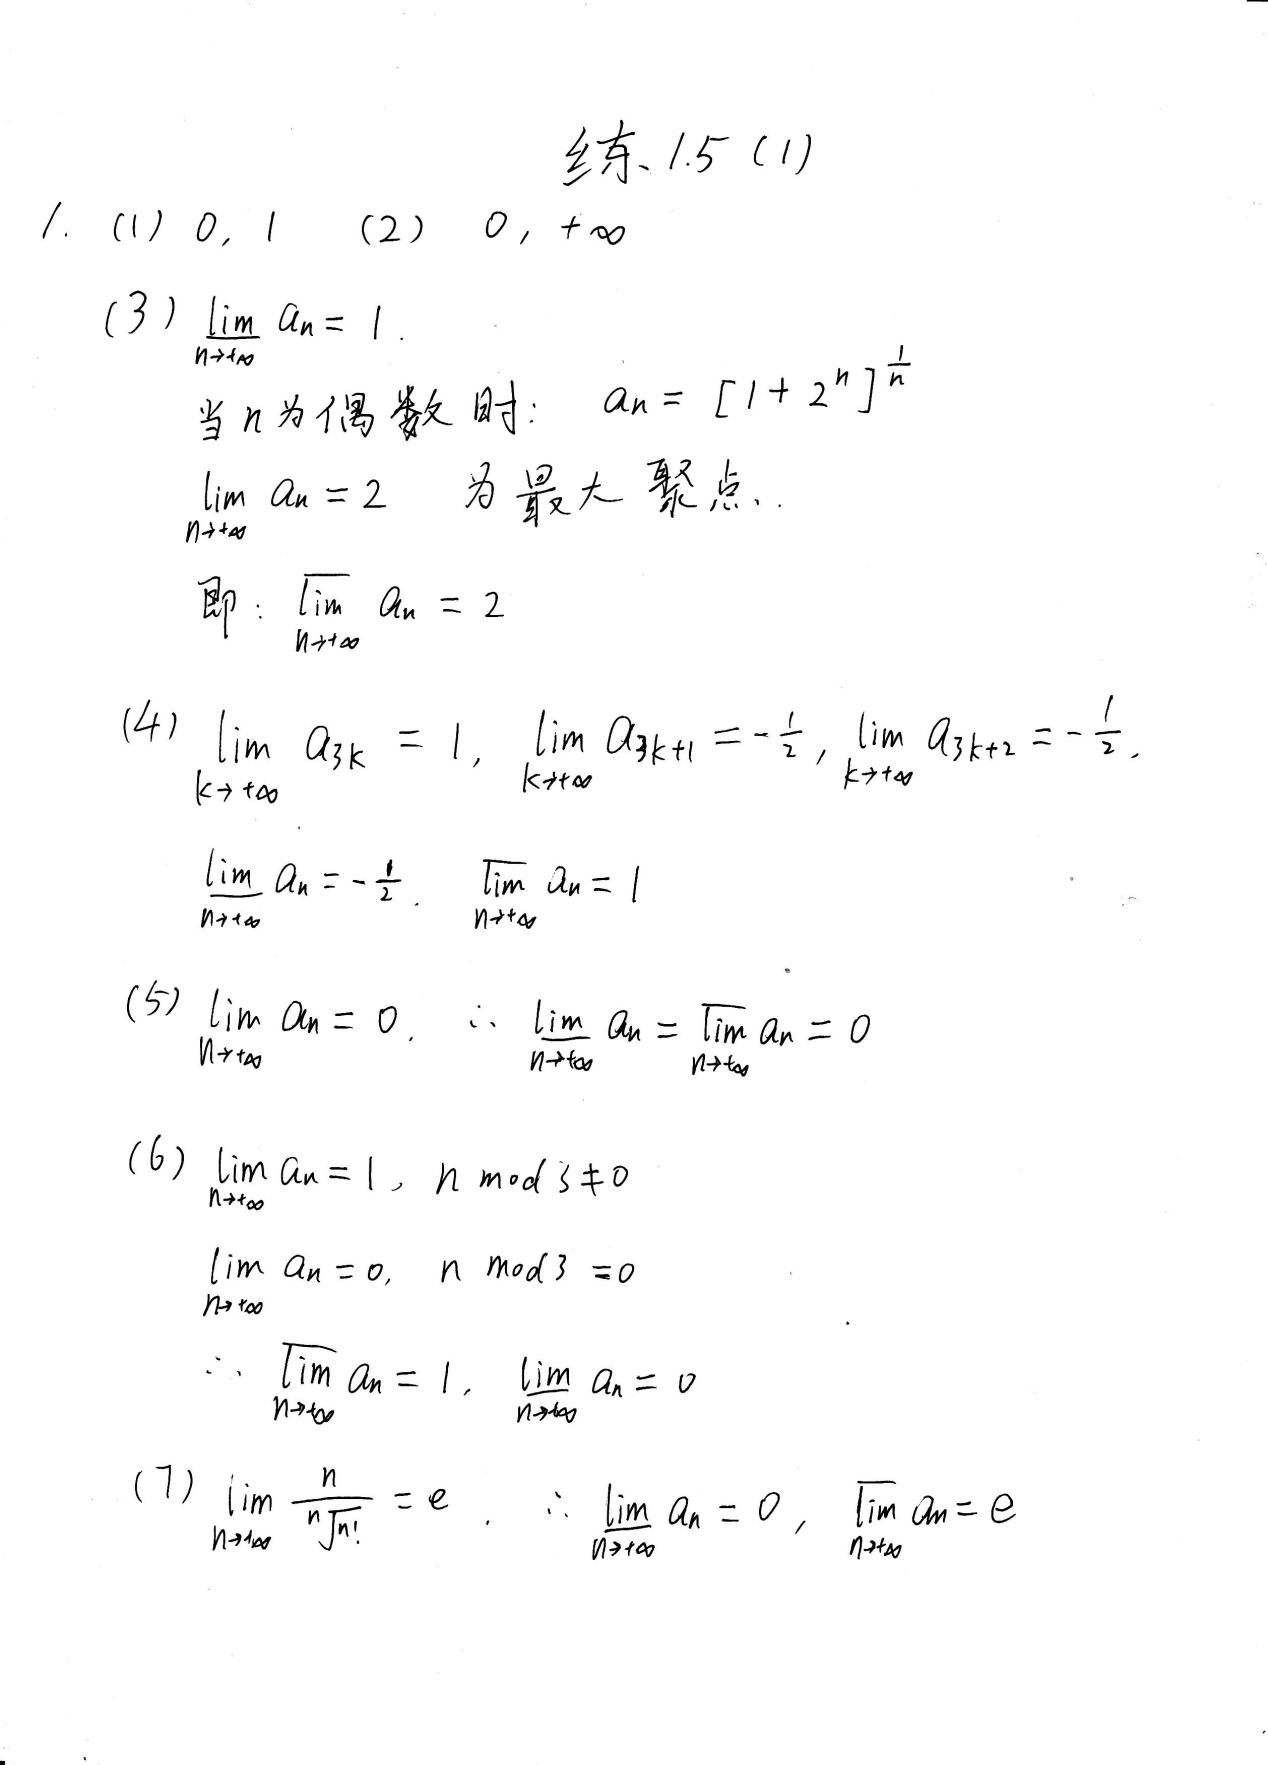 练 1.5 (1)
1. (1) 0, 1 (2) 0, +∞
(3) \underline{lim}_{n→+∞} a_n = 1.
当n为偶数时: a_n = [1+2^n]^{\frac{1}{n}}
lim_{n→+∞} a_n = 2 为最大聚点.
即: \overline{lim}_{n→+∞} a_n = 2
(4) lim_{k→+∞} a_{3k} = 1, lim_{k→+∞} a_{3k+1} = -\frac{1}{2}, lim_{k→+∞} a_{3k+2} = -\frac{1}{2}.
\underline{lim}_{n→+∞} a_n = -\frac{1}{2}. \overline{lim}_{n→+∞} a_n = 1
(5) lim_{n→+∞} a_n = 0. ∴ \underline{lim}_{n→+∞} a_n = \overline{lim}_{n→+∞} a_n = 0
(6) lim_{n→+∞} a_n = 1, n mod 3 ≠ 0
lim_{n→+∞} a_n = 0, n mod 3 = 0
∴ \overline{lim}_{n→+∞} a_n = 1, \underline{lim}_{n→+∞} a_n = 0
(7) lim_{n→+∞} \frac{n}{\sqrt[n]{n!}} = e. ∴ \underline{lim}_{n→+∞} a_n = 0, \overline{lim}_{n→+∞} a_n = e